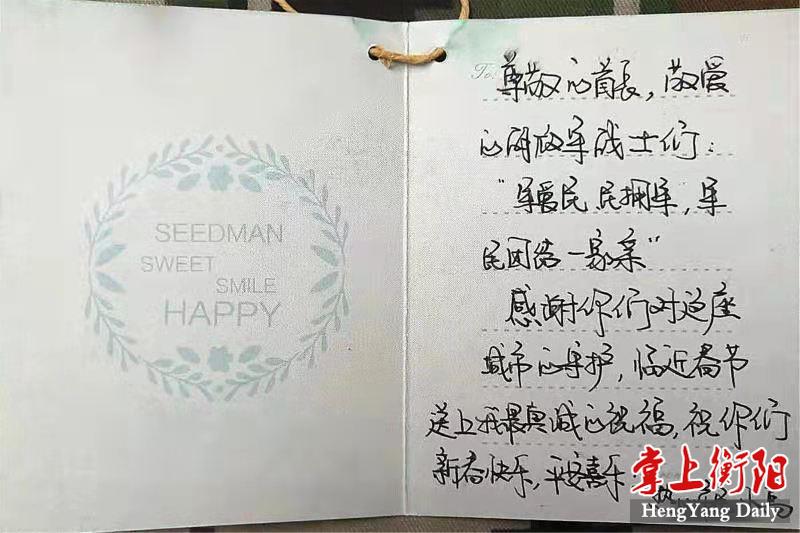 SEEDMAN
SWEET
SMILE
HAPPY
To:
尊敬的首长，敬爱
的解放军战士们：
“军爱民 民拥军，军
民团结一家亲”
感谢你们对这座
城市的守护，临近春节
送上我最真诚的祝福，祝你们
新春快乐，平安喜乐.
掌上衡阳
HengYang Daily